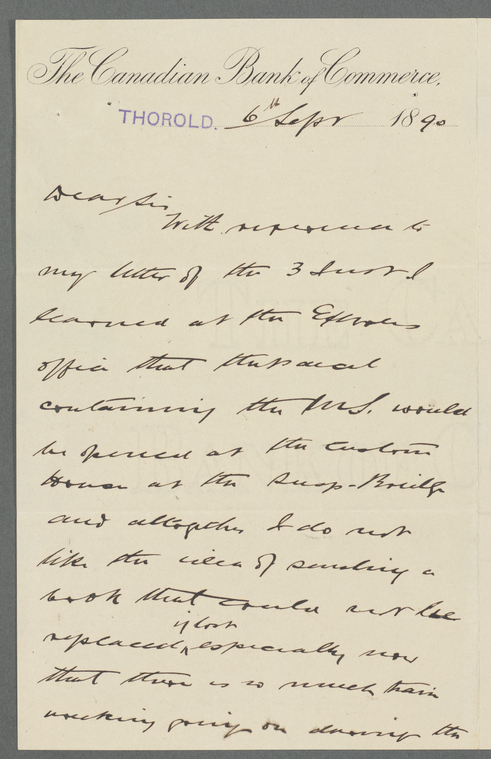 The Canadian Bank of Commerce,
THOROLD. 6th Sept 1890
Dear Sir
With reference to
my letter of the 3 Inst I
learned at the Express
office that the parcel
containing the M.S. would
be opened at the Custom
House at the Susp-Bridge
and altogether I do not
like the idea of sending a
book that could not be
replaced, if lost especially now
that there is so much train
wrecking going on during the